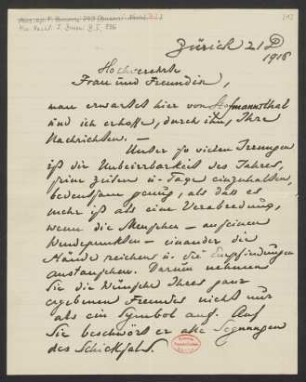 Zürich 21 D
1916
Hochverehrte
Frau und Freundin,
man erwartet hier von Hofmannsthal
und ich erhoffe, durch ihn, Ihre
Nachrichten. —
Unter so vielen Trennungen
ist die Unbeirrbarkeit des Jahres,
seine Zeiten u. Tage einzuhalten,
bedeutsam genug, als daß es
mehr ist als eine Verabredung,
wenn die Menschen – auf seinen
Wendepunkten – einander die
Hände reichen u. die Empfindungen
austauschen. Darum nehmen
Sie die Wünsche Ihres ganz
ergebenen Freundes nicht nur
als ein Symbol auf. Auf
Sie beschwört er alle Segnungen
des Schicksals.